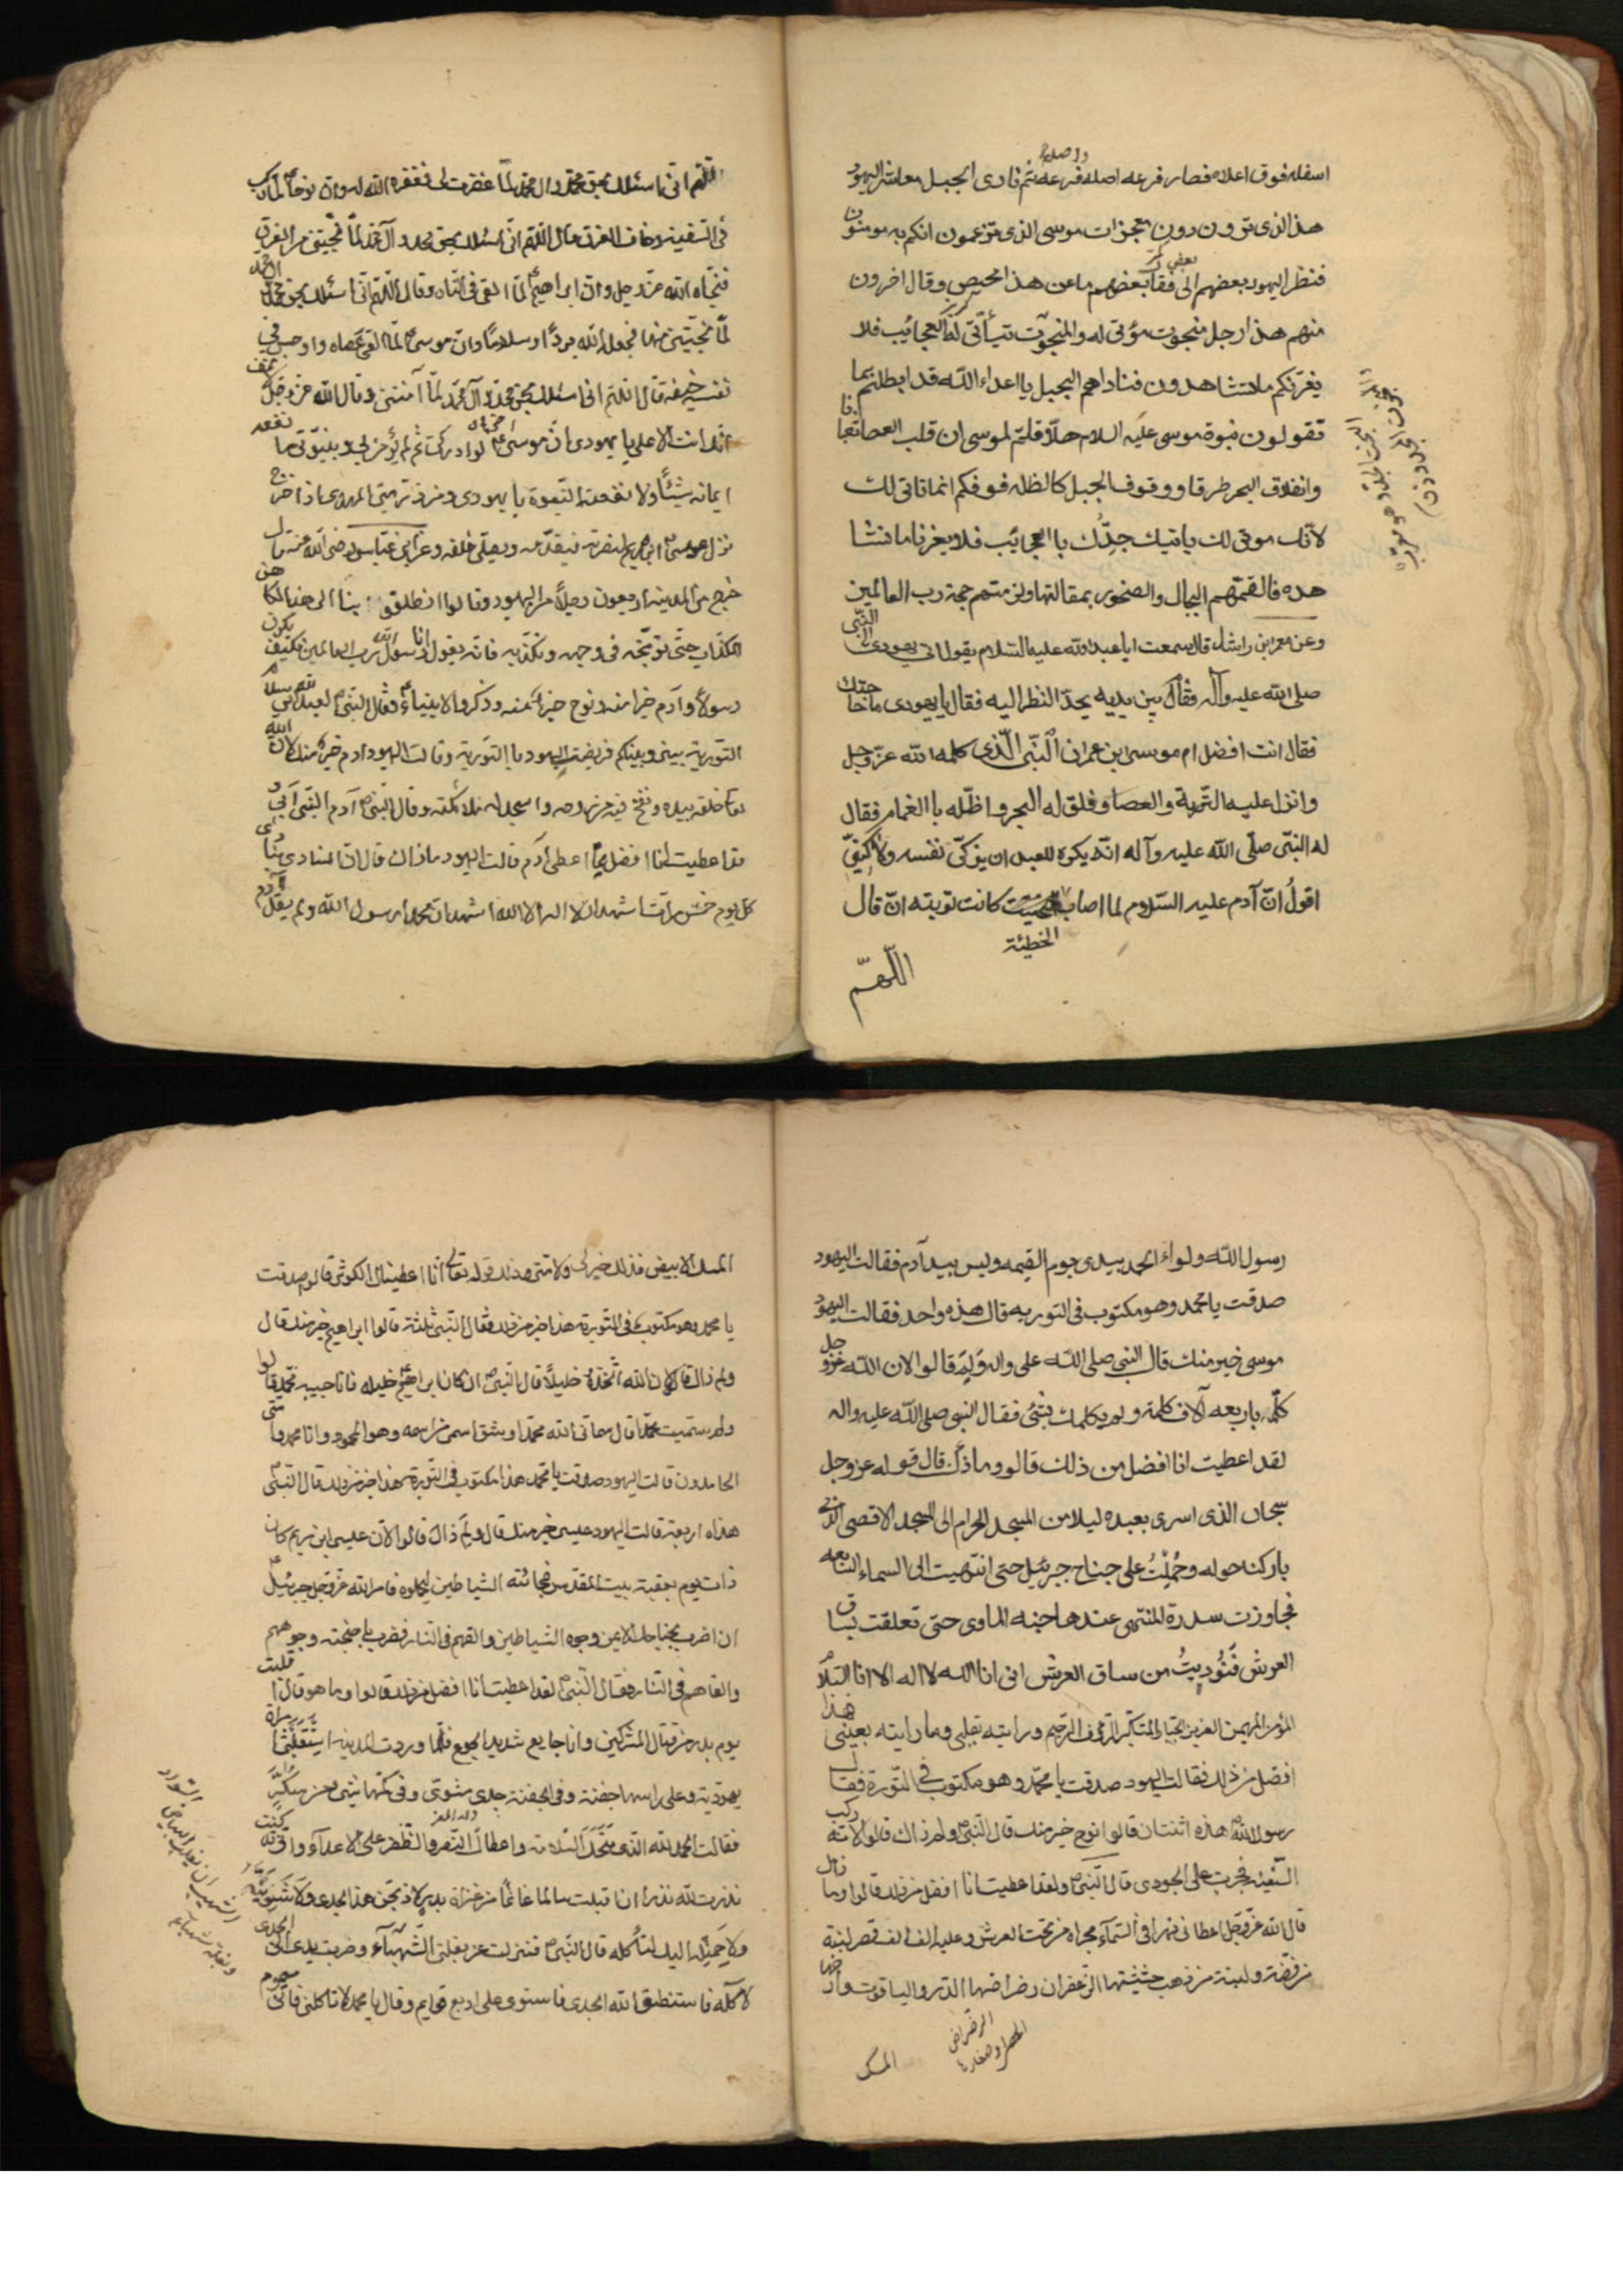 اسفله فوق اعلاه فصار فرعه اصله وفرعه ثم نادى الجبل معاشر اليهود
هذا الذى ترون دون معجزات موسى الذى تزعمون انكم به مومنون
فنظر اليهود بعضهم الى بعض فقال بعضهم ما عن هذا محيص وقال اخرون
منهم هذا رجل منجوت مؤتى له والمنجوت يتأتى له العجائب فلا
يغرنكم ما تشاهدون فناداهم الجبل يا اعداء الله قد ابطلتم بما
تقولون نبوة موسى عليه السلام هلا قلتم لموسى ان قلب العصا ثعبانا
وانفلاق البحر طرقا ووقوف الجبل كالظله فوقكم انما تاتى لك
لانك موتى لك ياتيك جدك باالعجائب فلا يغرنا ما نشا
هده فالقمتهم الجبال والصخور بمقالتها ولزمتهم حجة رب العالمين
وعن معمر ابن راشد قال سمعت ابا عبد الله عليه السلام يقول اتى يهودى الى النبى
صلى الله عليه وآله فقام بين يديه يحد النظر اليه فقال يا يهودى ما حاجتك
فقال انت افضل ام موسى ابن عمران النبى الذى كلمه الله عز وجل
وانزل عليه التورية والعصا وفلق له البحر واظله باالغمام فقال
له النبى صلى الله عليه وآله انه يكره للعبد ان يزكى نفسه ولكنى
اقول ان آدم عليه السلام لما اصاب الخطيئة كانت توبته ان قال
اللهم
اللهم انى اسئلك بحق محمد وال محمد لما غفرت لى فغفره الله له وان نوحا لما ركب
فى السفينه وخاف الغرق قال اللهم انى اسئلك بحق محمد وآل محمد لما نجيتنى من الغرق
فنجاه الله عز وجل وان ابراهيم لما القى فى النار وقال اللهم انى اسئلك بحق محمد وال محمد
لما نجيتنى منها فجعل الله بردا وسلاما وان موسى لما القى عصاه واوجس فى
نفسه خيفة قال اللهم انى اسئلك بحق محمد وآل محمد لما آمنتنى وقال الله عز وجل لا تخف
انك انت الاعلى يا يهودى ان موسى لو ادركنى ثم لم يؤمن بى وبنبوتى ما نفعه
ايمانه شيئا ولا نفعته النبوة يا يهودى ومن ذريتى المهدى اذا خرج
نزل عيسى ابن مريم لنصرته فيقدمه ويصلى خلفه وعن ابن عباس رضى الله عنه قال
خرج من المدينه اربعون رجلا من اليهود وقالوا انطلقوا بنا الى هذا الكاهن
الكذاب حتى نوبخه فى وجهه ونكذبه فانه يقول انا رسول رب العالمين فكيف يكون
رسولا وآدم خير منه ونوح خير منه وذكروا الانبياء فقال النبى لعبد الله بن سلام
التورية بينى وبينكم فرضيت اليهود باالتورية وقالت اليهود ادم خير منك لان الله
تعالى خلقه بيده ونفخ فيه من روحه واسجد له ملائكته وقال النبى آدم النبى ابى و
قد اعطيت انا افضل مما اعطى آدم قالت اليهود ما ذاك قال ان المنادى ينادى
كل يوم خمس مرات اشهد ان لا اله الا الله اشهد ان محمدا رسول الله ولم يقل آدم
رسول الله ولواء الحمد بيدى يوم القيمه وليس بيد آدم فقالت اليهود
صدقت يا محمد وهو مكتوب فى التوريه قال هذه واحد فقالت اليهود
موسى خير منك قال النبى صلى الله على واله ولم قالوا لان الله عز وجل
كلمه باربعه آلاف كلمة ولم يكلمك بشئ فقال النبى صلى الله عليه واله
لقد اعطيت انا افضل من ذلك قالو وما ذاك قال قوله عز وجل
سبحان الذى اسرى بعبده ليلا من المسجد الحرام الى المسجد الاقصى الذى
باركنا حوله وحملت على جناح جبرئيل حتى انتهيت الى السماء السابعه
فجاوزت سدرة المنتهى عندها جنه الماوى حتى تعلقت بساق
العرش فنوديت من ساق العرش انى انا الله لا اله الا انا السلام
المؤمن المهيمن العزيز الجبار المتكبر الرؤف الرحيم ورايته بقلبى وما رايته بعينى هذا
افضل من ذلك فقالت اليهود صدقت يا محمد وهو مكتوب فى التورة فقال
رسول الله هذه اثنتان قالوا نوح خير منك قال النبى ولم ذاك قالوا لانه ركب
السفينه فجرت على الجودى قال النبى ولقد اعطيت انا افضل من ذلك قالوا وما قال
قال الله عز وجل اعطانى نهرا فى السماء مجراه من تحت العرش وعليه الف الف قصر لبنة
من فضة ولبنة من ذهب حشيشها الزعفران رضراضها الدر والياقوت وارضها
الرضراض الحصا وصغارها
المسك
المسك الابيض فذلك خير لى ولامتى وذلك قوله تعالى انا اعطيناك الكوثر قالو صدقت
يا محمد وهو مكتوب فى التورية هذا خير من ذلك فقال النبى ثلثة قالوا ابراهيم خير منك قال
ولم ذاك قالوا لان الله اتخذه خليلا قال النبى ان كان ابراهيم خليله فانا حبيبه محمد قالوا
ولم سميت محمدا قال سمانى الله محمدا وشق اسمى من اسمه وهو المحمود وانا محمد وامتى
الحامدون قالت اليهود صدقت يا محمد هذا مكتوب فى التورية هذا خير من ذلك قال النبى
هذاه اربعة قالت اليهود عيسى خير منك قال ولم ذاك قالوا لان عيسى ابن مريم كان
ذات يوم بعقبة بيت المقدس فجائته الشياطين ليحملوه فامر الله عز وجل جبرئيل
ان اضرب بجناحك الايمن وجوه الشياطين والقهم فى النار فضرب باجنحته وجوههم
والقاهم فى النار فقال النبى لقد اعطيت انا افضل من ذلك قالوا وما هو قال اقبلت
يوم بدر من قتال المشركين وانا جايع شديد الجوع فلما وردت المدينه استقبلتنى امراة
يهودية وعلى راسها جفنة وفى الجفنة جدى مشوى وفى كمها شئ من سكر
فقالت الحمد لله الذى منحك السلامة واعطاك النصر والظفر على الاعداء وانى كنت
نذرت لله نذرا ان اقبلت سالما غانما من غزاة بدر لاذبحن هذا الجدى ولاشوينه
ولاحملنه اليك لتأكله قال النبى فنزلت عن بغلتى الشهباء وضربت يدى الى الجدى
لآكله فاستنطق الله الجدى فاستوى على اربع قوايم وقال يا محمد لا تاكلنى فانى مسموم